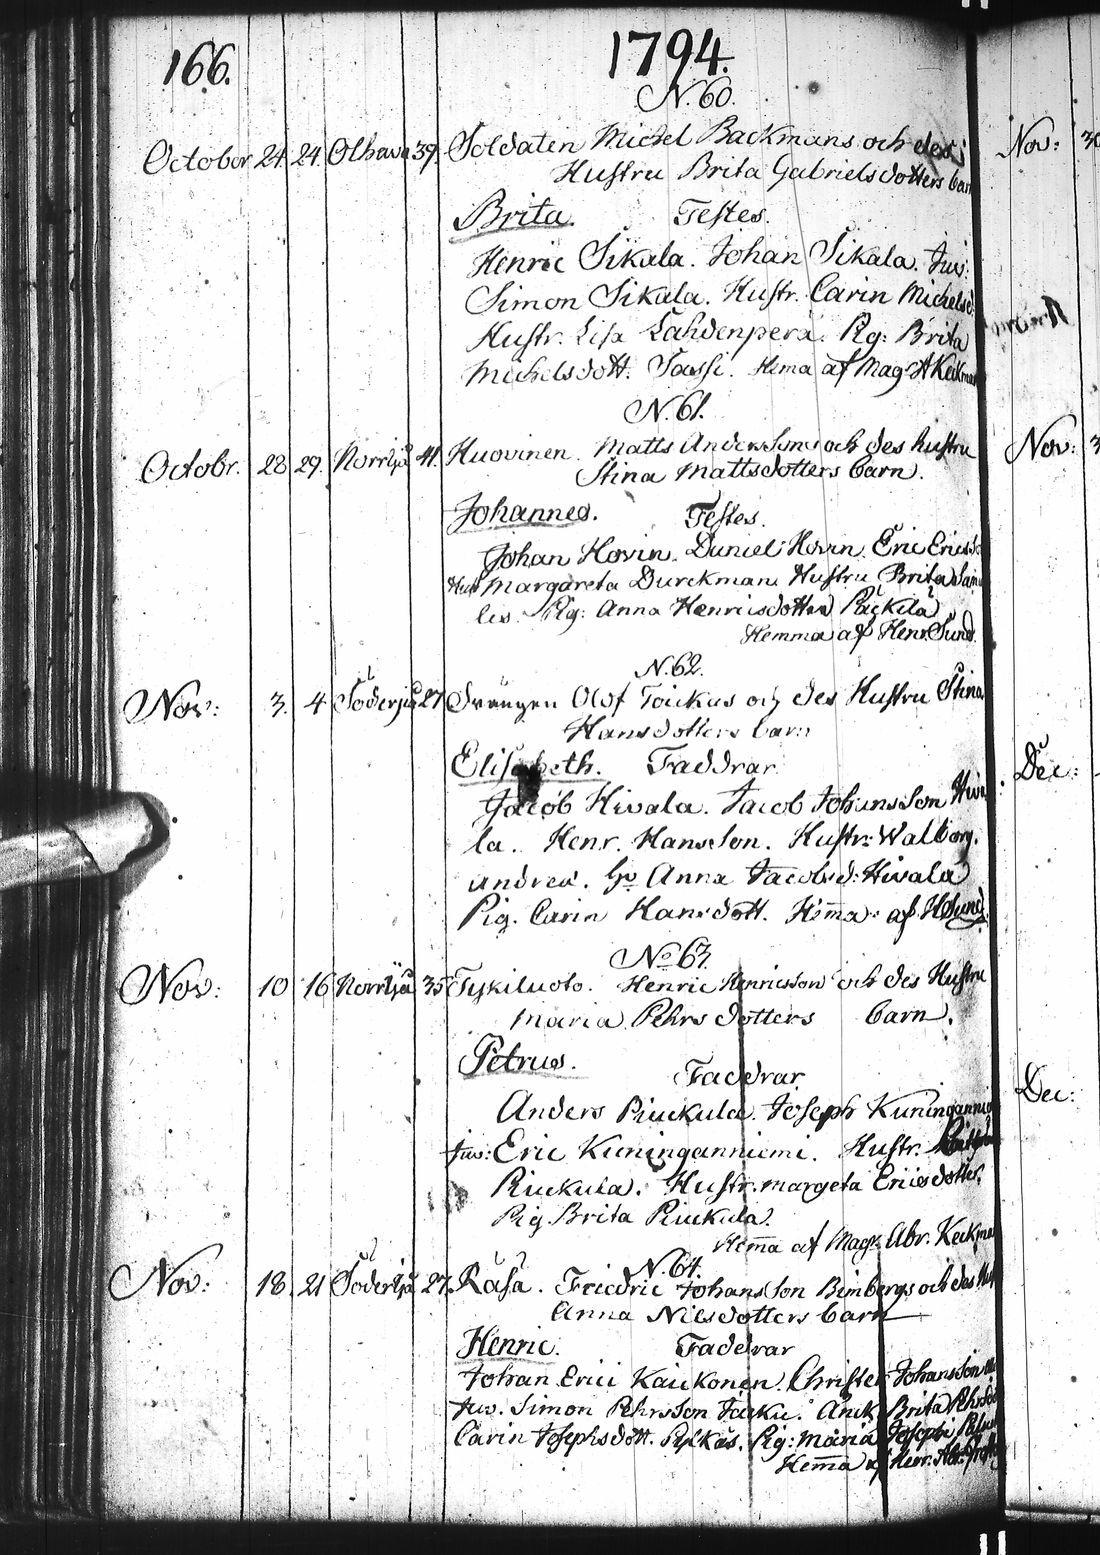 166. 1794.
N. 60.
October 24. 24. Olhava 39. Soldaten Michel Backmans och des
Hustru Brita Gabrielsdotters barn
Brita. Testes.
Henric Sikala. Johan Sikala. Juv:
Simon Sikala. Hustr. Carin Michelsd
Hustr. Lisa Lahdenpera. Pig: Brita
Michelsdott. Sassi. Hema af Mag: A Keckman
N. 61.
Octobr. 28 29. Norrijo 41. Huovinen. Matts Anderssons och des hustru
Stina Mattsdotters barn.
Johannes. Testes.
Johan Hovin. Daniel Hovin. Eric Erics
Hust Margareta Durckman Hustru Brita
lis. Pig: Anna Henricsdotter Päckilä
Hemma af Henr. Sund.
N. 62.
Nov: 3. 4 Söderijo 27 Drängen Olof Toickus och des Hustru Stina
Hansdotters barn
Elisabeth. Faddrar
Jacob Hivala. Jacob Johansson Hiva
la. Henr. Hansson. Hustr: Walborg.
Andrea. Anna Jacobsd: Hivala
Pig. Carin Hansdott. Hema: af H Sund.
No 63.
Nov: 10 16 Norrijo 35 Tykiluoto. Henric Henricsson och des Hustru
Maria Pehrsdotters barn.
Petrus.
Faddrar
Anders Riuckula. Joseph Kuninganniemi
Juv: Eric Kuninganniemi. Hustr.
Riuckula. Hustr. Margeta Ericsdotter.
Pig. Brita Riuckula.
Hema af Mag: Abr. Keckman
N. 64.
Nov: 18. 21 Söderijo 27. Räsä. Friedric Johansson Bimbergs och das Hust
Anna Nilsdotters barn
Henric. Faddrar
Johan Erici Kaickonen. Christer Johansson
Juv. Simon Pehrsson Jacku. Änck. Brita Pehrsdo
Carin Josephsdott. Pylkäs. Pig: Maria Josephs
Hema af Herr.
Nov: 30
Nov: 3
Dec:
Dec: